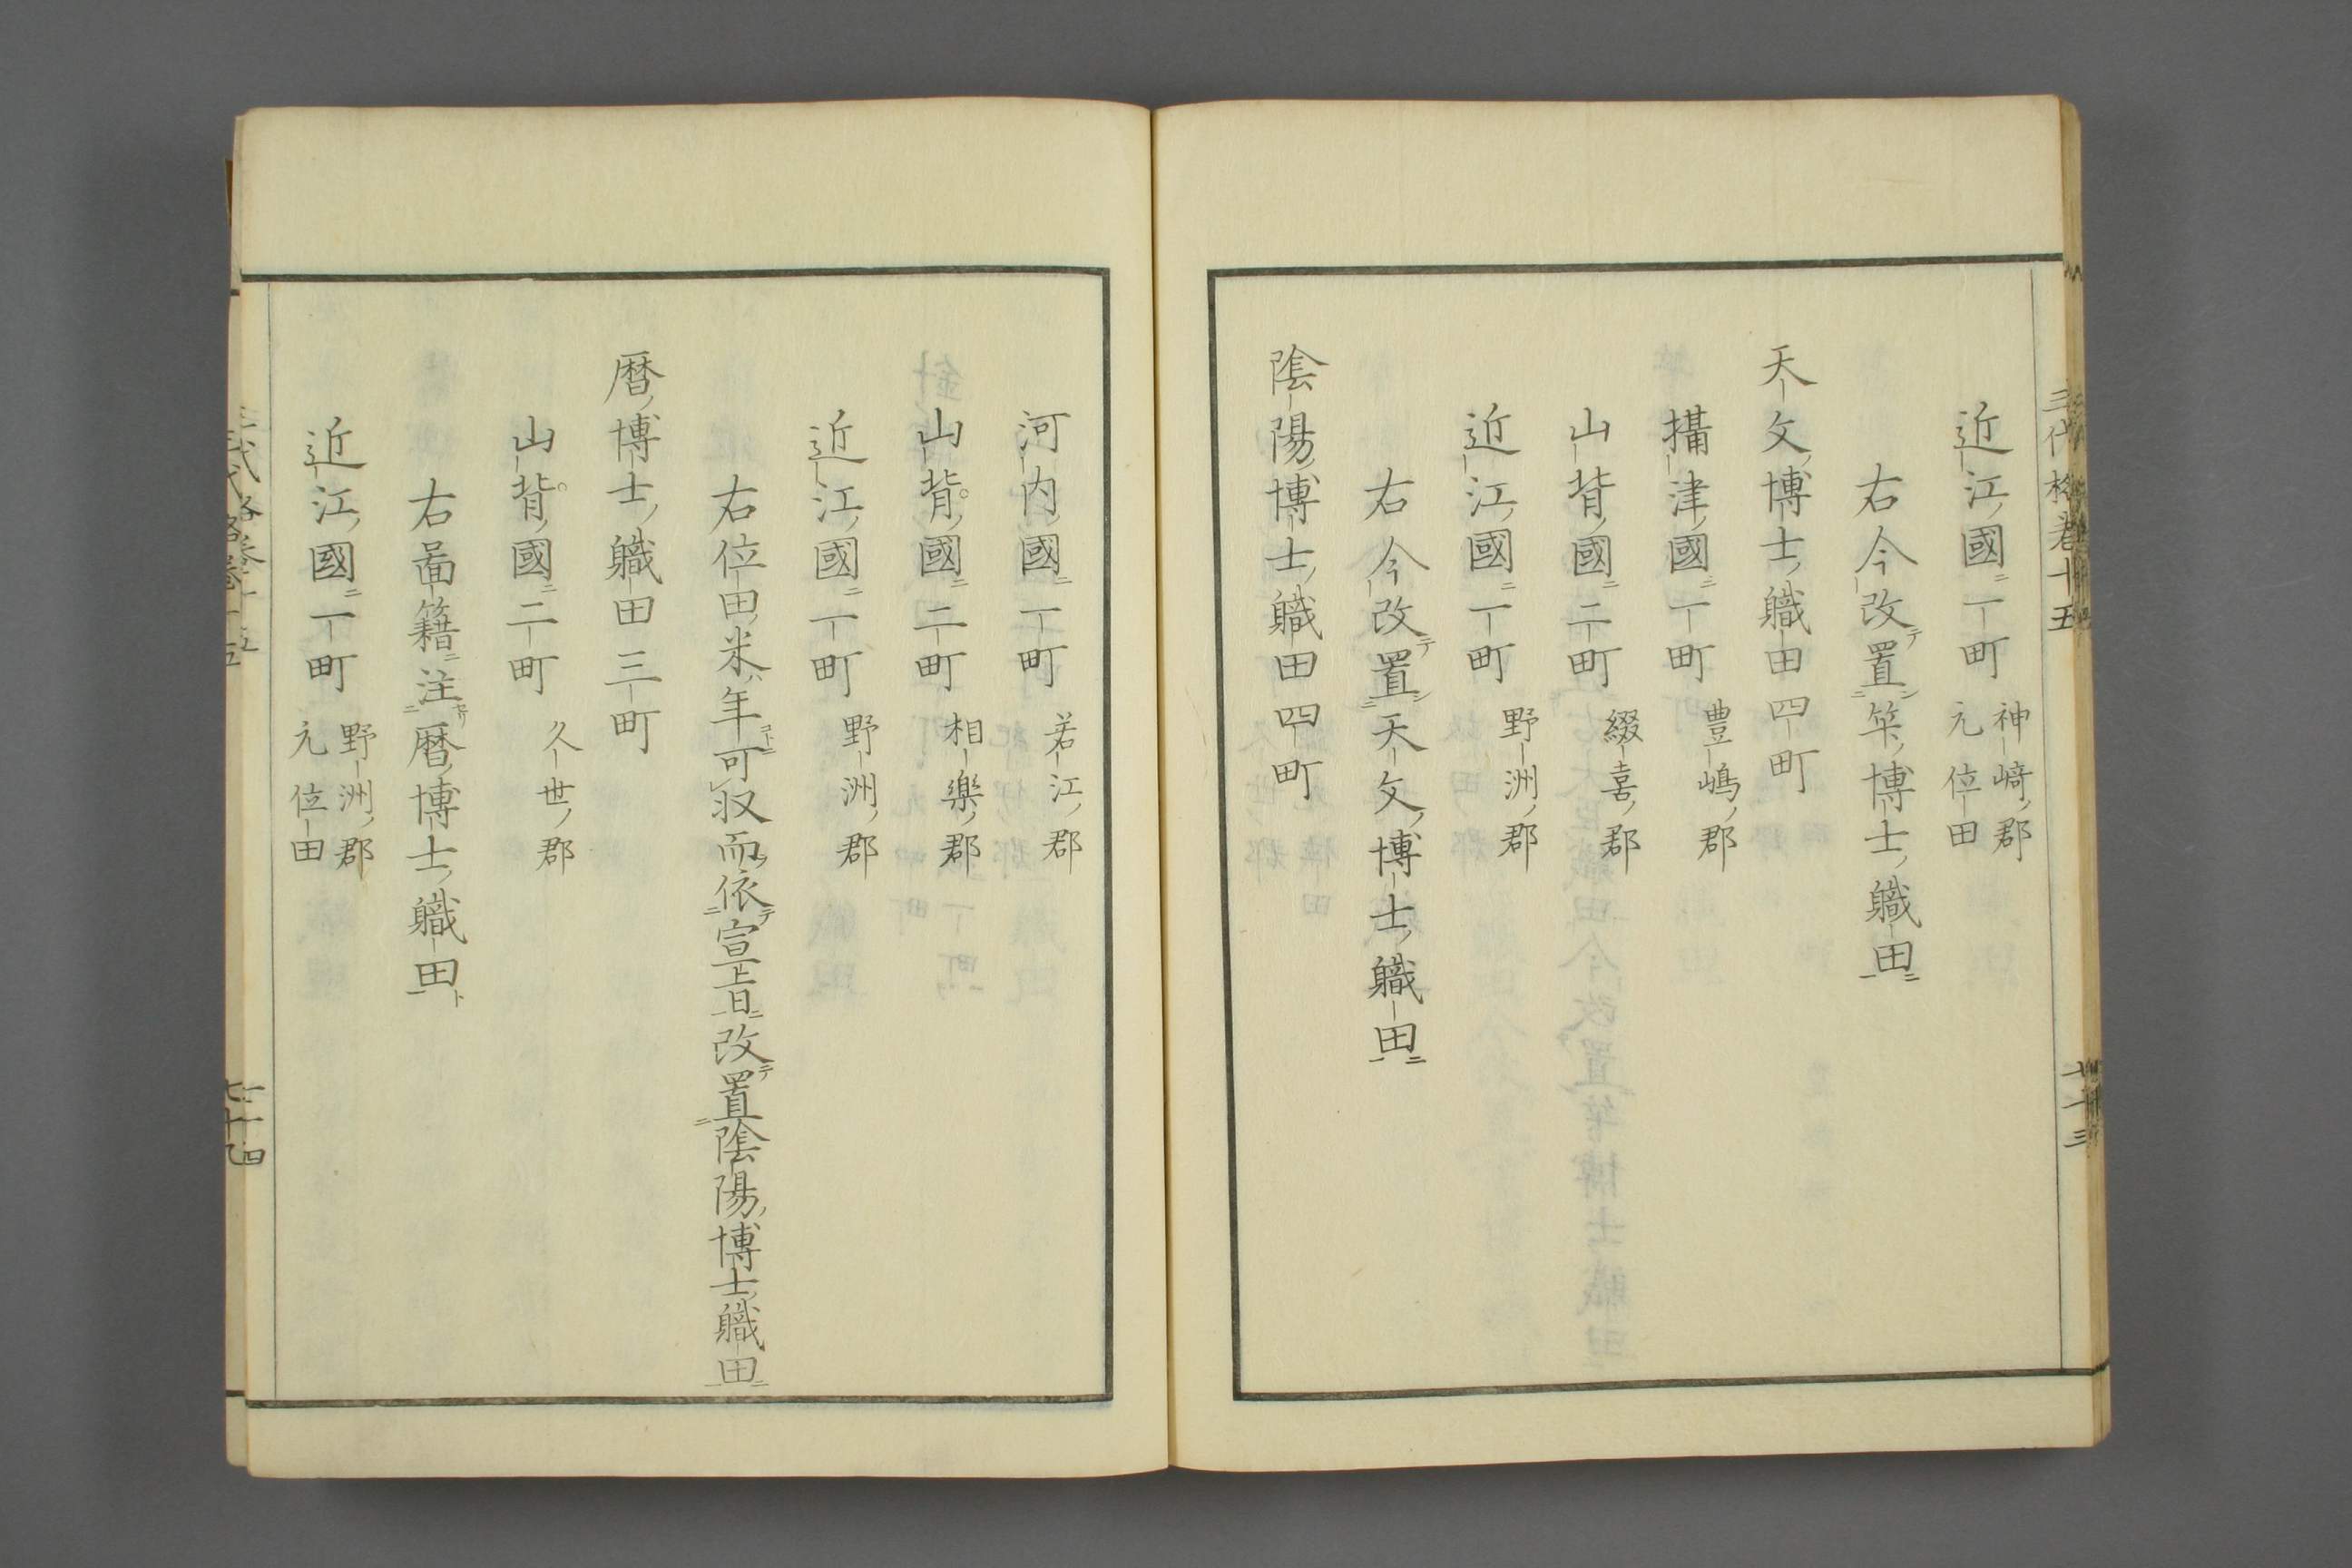 三代格卷十五
七十三
近江國一町 神﨑郡
元位田
右今改置筭博士職田
天文博士職田四町
攝津國一町 豊嶋郡
山背國二町 綴喜郡
近江國一町 野洲郡
右今改置天文博士職田
陰陽博士職田四町
河内國一町 若江郡
山背國二町 相樂郡
近江國一町 野洲郡
右位田米年可収而依宣旨改置陰陽博士職田
暦博士職田三町
山背國二町 久世郡
右啚籍注暦博士職田
近江國一町 野洲郡
元位田